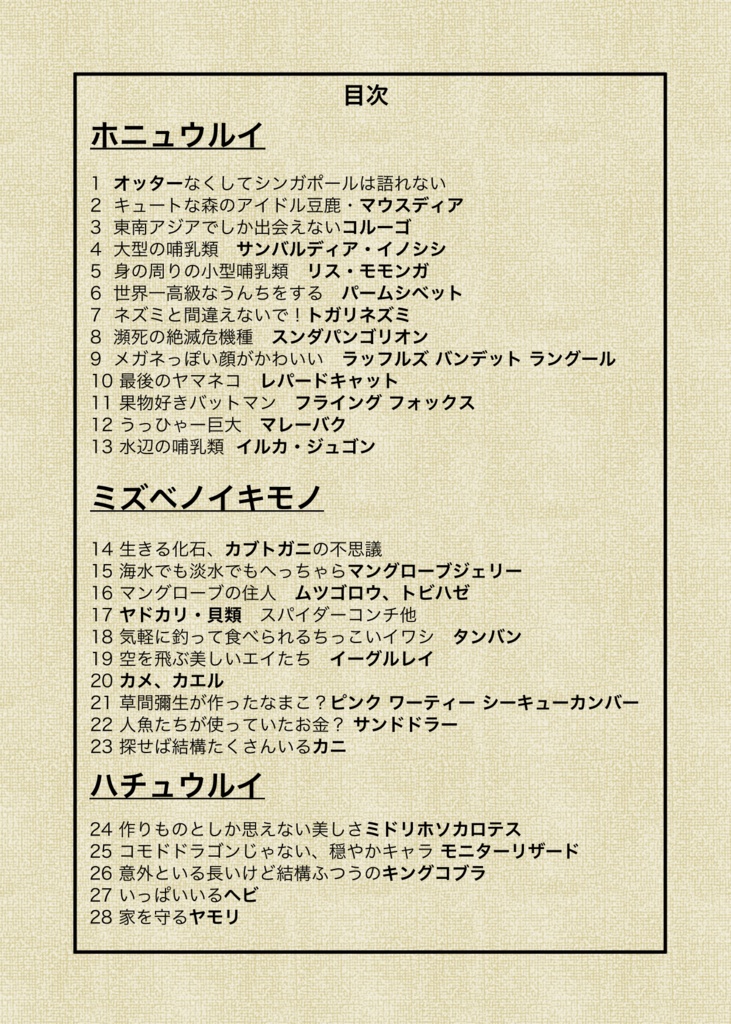 目次
ホニュウルイ
1 オッターなくしてシンガポールは語れない
2 キュートな森のアイドル豆鹿・マウスディア
3 東南アジアでしか出会えないコルーゴ
4 大型の哺乳類　サンバルディア・イノシシ
5 身の周りの小型哺乳類　リス・モモンガ
6 世界一高級なうんちをする　パームシベット
7 ネズミと間違えないで！トガリネズミ
8 瀕死の絶滅危機種　スンダパンゴリオン
9 メガネっぽい顔がかわいい　ラッフルズ バンデット ラングール
10 最後のヤマネコ　レパードキャット
11 果物好きバットマン　フライング フォックス
12 うっひゃー巨大　マレーバク
13 水辺の哺乳類 イルカ・ジュゴン
ミズベノイキモノ
14 生きる化石、カブトガニの不思議
15 海水でも淡水でもへっちゃらマングローブジェリー
16 マングローブの住人　ムツゴロウ、トビハゼ
17 ヤドカリ・貝類　スパイダーコンチ他
18 気軽に釣って食べられるちっこいイワシ　タンバン
19 空を飛ぶ美しいエイたち　イーグルレイ
20 カメ、カエル
21 草間彌生が作ったなまこ？ピンク ワーティー シーキューカンバー
22 人魚たちが使っていたお金？ サンドドラー
23 探せば結構たくさんいるカニ
ハチュウルイ
24 作りものとしか思えない美しさミドリホソカロテス
25 コモドドラゴンじゃない、穏やかキャラ モニターリザード
26 意外といる長いけど結構ふつうのキングコブラ
27 いっぱいいるヘビ
28 家を守るヤモリ